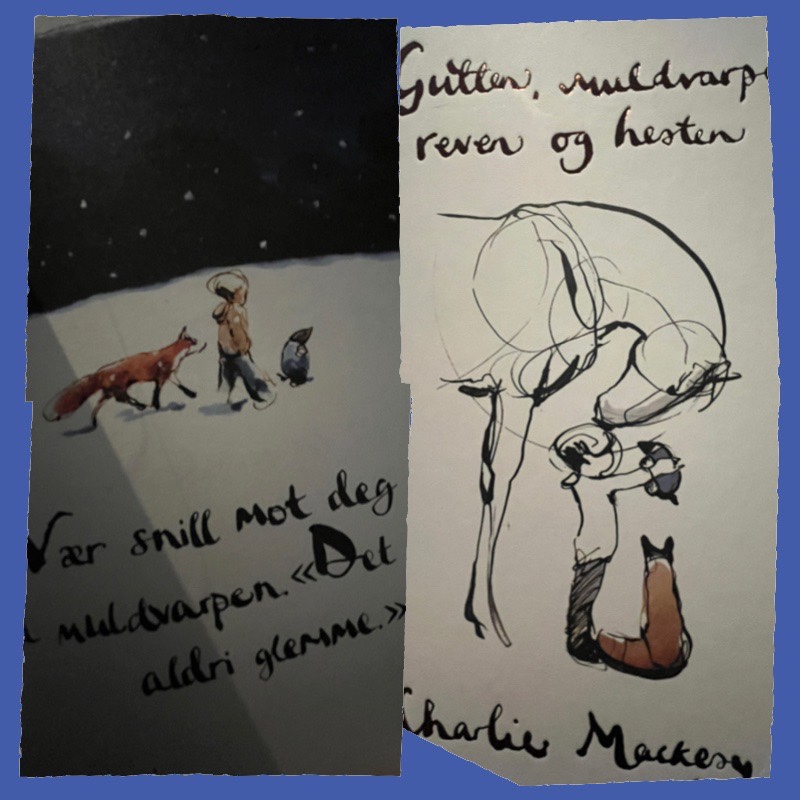 Vær snill mot deg
muldvarpen. «Det
aldri glemme.»
Gutten, muldvarp
reven og hesten
Charlie Mackesy